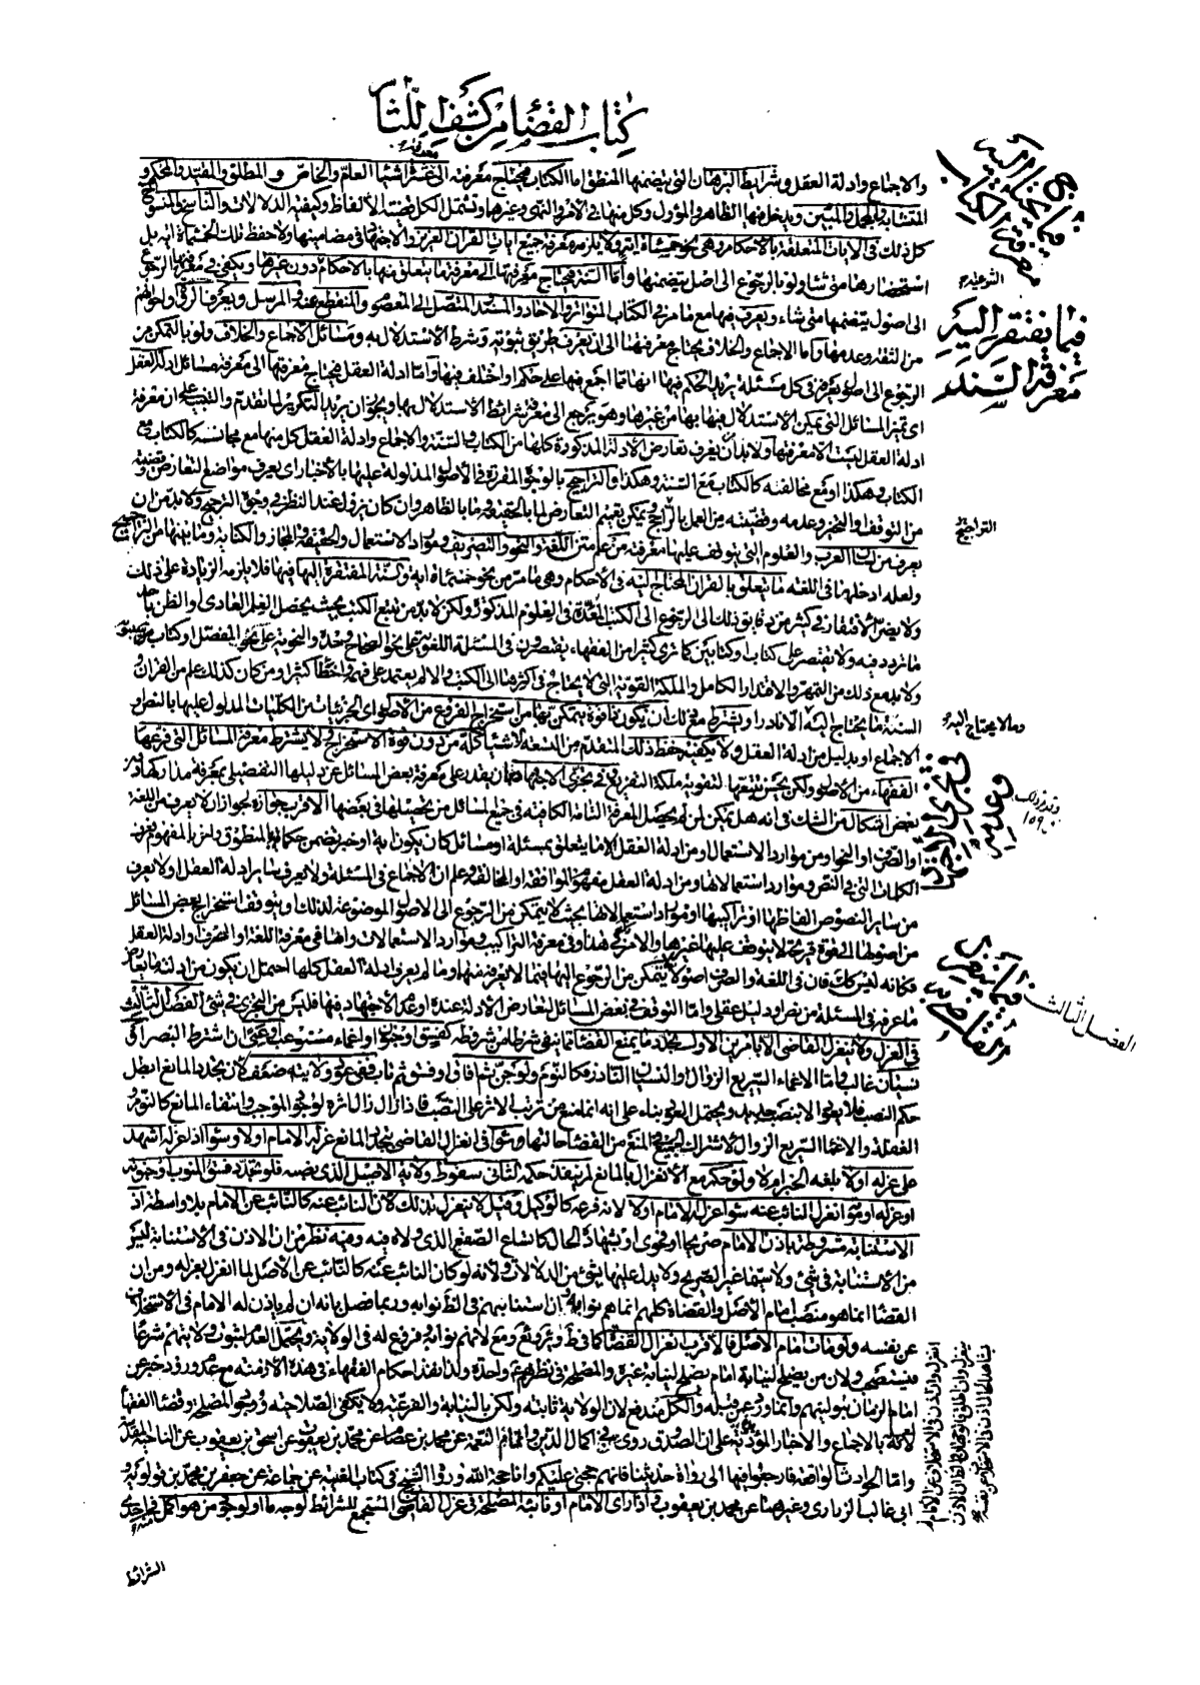 كتاب القضاء من كشف اللثام
والاجماع وادلة العقل وشرايط البرهان التى يتضمنها المنطق اما الكتاب فيحتاج معرفته الى عشرة اشياء العام والخاص و المطلق والمقيد والمحكم و
المتشابه والمجمل والمبين ويدخل فيها الظاهر والمؤول وكل منها فى الامر والنهى وغيرها وتشمل الكل قضية الالفاظ وكيفية الدلالات والناسخ والمنسوخ
كل ذلك فى الايات المتعلقة بالاحكام وهى نحو خمسمائة اية ولا يلزم معرفة جميع ايات القران العزيز والاجتهاد فى مضامينها ولا حفظ تلك الخمسمائة اية بل
استحضارها متى شاء ولو بالرجوع الى اصل يتضمنها واما السنة فيحتاج معرفتها الى معرفة ما يتعلق منها بالاحكام دون غيرها ويكفى فى معرفتها الرجوع
الى اصول يتضمنها متى شاء ويعرف فيها مع ما مر فى الكتاب المتواتر والاحاد والمسند المتصل الى المعصوم والمنقطع عنه والمرسل ويعرف الرواة واحوالهم
من الثقة وعدمها واما الاجماع والخلاف فيحتاج معرفتهما الى ان يعرف طريق ثبوته وشرط الاستدلال به ومسائل الاجماع والخلاف ولو بالتمكن من
الرجوع الى اصل يعرفه فى كل مسئلة يريد الحكم فيها انها مما اجمع فيها على حكم او اختلف فيها واما ادلة العقل فيحتاج معرفتها الى معرفة مسائل ادلة العقل
اى تميز المسائل التى يمكن الاستدلال فيها بها من غيرها وهو يرجع الى معرفة شرائط الاستدلال بها ويجوز ان يريد التكرير لما تقدم والتنبيه على ان معرفة
ادلة العقل ليست الا معرفتها ولا بد ان يعرف تعارض الادلة المذكورة كلها من الكتاب والسنة والاجماع وادلة العقل كل منها مع مجانسه كالكتاب مع
الكتاب وهكذا او مع مخالفه كالكتاب مع السنة وهكذا والتراجيح بالوجوه المقررة فى الاصول المدلولة عليها بالاخبار اى يعرف مواضع التعارض وقضيته
من التوقف او التخير وعدمه وقضيته من العمل بالراجح ويمكن تعميم التعارض لما بالحقيقة وما بالظاهر وان كان يزول عند النظر فى وجوه الترجيح ولا بد من ان
يعرف من لسان العرب والعلوم التى يتوقف عليها معرفته من علم متن اللغة والنحو والتصريف وموارد الاستعمال والحقيقة والمجاز والكناية وما بينهما من التراجيح
ولعله ادخلها فى اللغة ما يتعلق بالقران المحتاج اليه فى الاحكام وهى ما مر من نحو خمسمائة اية والسنة المفتقرة اليها فيها فلا يلزمه الزيادة على ذلك
ولا يضر الافتقار فى كثير من دقايق ذلك الى الرجوع الى الكتب المعدة فى العلوم المذكورة ولكن لا بد من تتبع الكتب بحيث يحصل العلم العادى او الظن باحد
ما تردد فيه ولا يقتصر على كتاب او كتابين كما ترى كثيرا من الفقهاء يقتصرون فى المسئلة اللغوية على نحو الصحاح وحده والنحوية على نحو المفصل او كتاب سيبويه
ولا بد مع ذلك من التمهر والاقتدار الكامل والملكة القوية التى لا يحتاج فى اكثرها الى الكتب والا لم يعتمد على فهمه واخطأ كثيرا ومن كان كذلك علم من القران و
السنة ما يحتاج اليه الا نادرا ويشترط مع ذلك ان يكون ذا قوة يتمكن بها من استخراج الفروع من الاصول اى الجزئيات من الكليات المدلول عليها بالنص او
الاجماع او بدليل من ادلة العقل ولا يكفيه حفظ ذلك المتقدم من التسعة الاشياء كله من دون قوة الاستخراج ولا يشترط معرفة المسائل التى فرعها
الفقهاء من الاصول ولكن يحسن تتبعها لتقوية ملكة التفريع وفى تجزى الاجتهاد بان يقدر على معرفة بعض المسائل عن دليلها التفصيلى بمعرفة مداركها دون
بعض اشكال من الشك فى انه هل يمكن لمن لم يحصل المعرفة التامة الكافية فى جميع المسائل من تحصيلها فى بعضها الاقرب جوازه لجواز ان لا يعرف من اللغة
او الصرف او النحو او من موارد الاستعمال او من ادلة العقل الا ما يتعلق بمسئلة او مسائل كان يكون اية او خبر يتضمن حكما بالمنطوق ولزم بالمفهوم يعرف
الكلمات التى فى النص وموارد استعمالاتها ومن ادلة العقل مفهوم الموافقة او المخالفة وعلم ان لا اجماع فى المسئلة ولا يعرف ساير ادلة العقل او لا يعرف
من ساير النصوص الفاظها او تراكيبها او موارد استعمالاتها بحيث لا يتمكن من الرجوع الى الاصول الموضوعة لذلك او يتوقف استخراج بعض المسائل
من اصولها الى قوة قريحة لا يتوقف عليها غيرها والامر فى هذا وفى معرفة التراكيب وموارد الاستعمالات واضح اما فى معرفة اللغة او الصرف او ادلة العقل
فكانه ليس كك فان فى اللغة والصرف اصولا يتمكن من الرجوع اليها فيما لا يعرفه منهما وما لم يعرف ادلة العقل كلها احتمل ان يكون من ادلته ما يعارض
ما عرفه فى المسئلة من نص او دليل عقلى واما التوقف فى بعض المسائل لتعارض الادلة عنده او عدم الاجتهاد فيها فليس من التجزى فى شئ الفصل الثالث
فى العزل ولا ينعزل القاضى الا بامرين الاول تجدد ما يمنع القضاء مما ينفى شرطا من شروطه كفسق او جنون او اغماء مستوعب او عمى ان شرط البصر او
نسيان غالب واما الاغماء السريع الزوال او النسيان النادر فكالنوم ولو جن ثم افاق او فسق ثم تاب ففى عود ولايته ضعف لان تجدد المانع ابطل
حكم النصب فلا يعود الا بنصب جديد ويحتمل العود بناء على انه انما منع من ترتب الاثر على النصب فاذا زال زال اثره لوجود الموجب وانتفاء المانع كالنوم و
الغفلة والاغماء السريع الزوال لاشتراك الجميع فى المنع من القضاء حالتها وسواء فى انعزال القاضى بتجدد المانع عزله الامام اولا وسواء اذا عزله اشهد
على عزله اولا بلغه الخبر ام لا ولو حكم مع الانعزال بالمانع لم ينفذ حكمه الثانى سقوط ولاية الاصل الذى نصبه فلو تجدد فسق المنوب او جنونه
او عزله او موته انعزل النائب عنه سواء عزله الامام اولا لانه فرعه كالوكيل وقيل لا ينعزل بذلك لان النائب عنه كالنائب عن الامام بلا واسطة اذ
الاستنابة مشروطة باذن الامام صريحا او فحوى او بشهادة الحال كاتساع الصقع الذى ولاه فيه وفيه نظر من ان الاذن فى الاستنابة ليس
من الاستنابة فى شئ ولا يستفاد غير الصريح ولا يدل عليها بشئ من الدلالات ولانه لو كان النائب عنه كالنائب عن الاصل لما انعزل بعزله ومن ان
القضاء انما هو منصب امام الاصل والقضاة كلهم انما هم نوابه وان استنابهم فى الظ نوابه وربما فصل بانه ان لم ياذن له الامام فى الاستخلاف
عن نفسه ولو مات امام الاصل فالاقرب انعزال القضاة كما فى ط وئر وئع ومع لانهم نوابه وفروع له فى الولاية ويحتمل العدم لثبوت ولايتهم شرعا
فيستصحب ولان من يصلح لنيابة امام يصلح لنيابة غيره والمصلحة فى نظرهم عم واحدة ولذا ينفذ احكام الفقهاء فى هذه الازمنة مع عدم ورود خبر عن
امام الزمان بتوليتهم وانما ورد عمن قبله والكل مندفع لان الولاية ثابتة ولكن بالنيابة والفرعية ولا يكفى الصلاحية ووجود المصلحة وقضاء الفقهاء
لانه بالاجماع والاخبار المؤذنة على ان الصدوق روى فى اكمال الدين واتمام النعمة عن محمد بن عصام عن محمد بن يعقوب عن اسحق بن يعقوب عن الناحية المقدسة
واما الحوادث الواقعة فارجعوا فيها الى رواة حديثنا فانهم حجتى عليكم وانا حجة الله ورواه الشيخ فى كتاب الغيبة عن جماعة عن جعفر بن محمد بن قولويه و
ابى غالب الزرارى وغيرهما عن محمد بن يعقوب واذا راى الامام او نائبه المصلحة فى عزل القاضى المستجمع للشرائط لوجه ما او لوجود من هو اكمل
الشرائط
فيما يحتاج اليه معرفة الكتاب
فيما يفتقر اليه معرفة السنة
التراجيح
وما لا يحتاج اليه
فى تجزى الاجتهاد وعدمه
الفصل الثالث